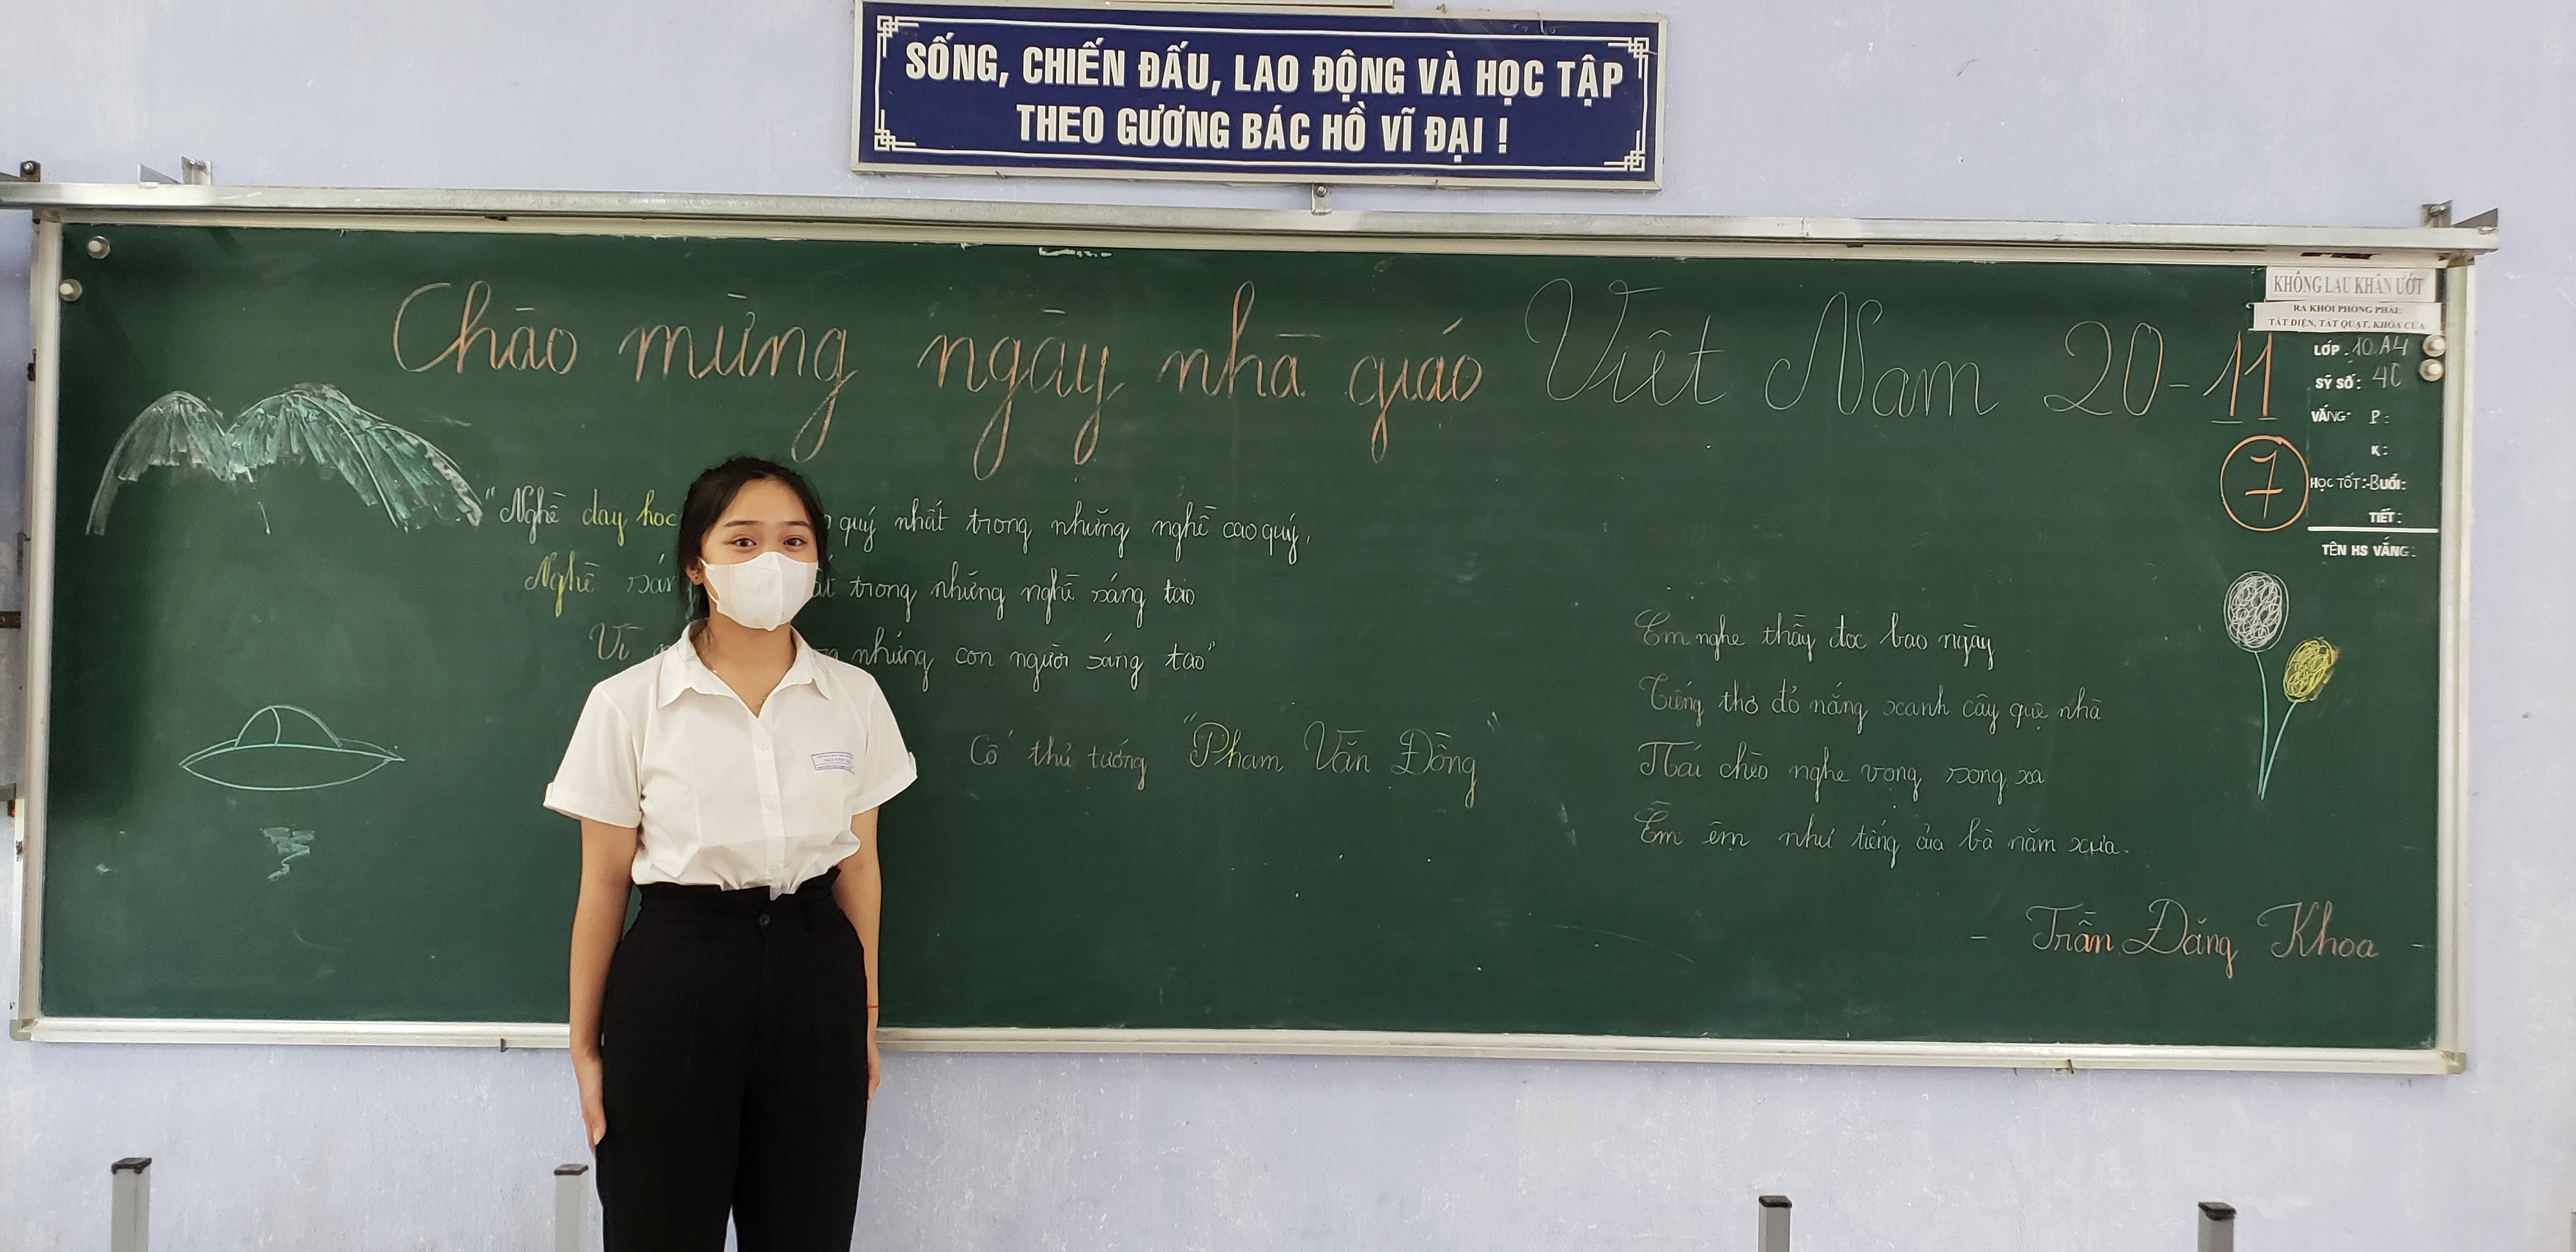 SỐNG, CHIẾN ĐẤU, LAO ĐỘNG VÀ HỌC TẬP
THEO GƯƠNG BÁC HỒ VĨ ĐẠI !
Chào mừng ngày nhà giáo Việt Nam 20-11
KHÔNG LAU KHĂN ƯỚT
RA KHỎI PHÒNG PHẢI:
TẮT ĐIỆN, TẮT QUẠT, KHÓA CỬA
LỚP: 10A4
SỸ SỐ: 40
VẮNG P:
K:
HỌC TỐT: BUỔI:
TIẾT:
TÊN HS VẮNG:
7
"Nghề dạy học quý nhất trong những nghề cao quý,
Nghề trong những nghề sáng tạo
Vì những con người sáng tạo"
Cố thủ tướng "Phạm Văn Đồng"
Em nghe thầy đọc bao ngày
Tiếng thơ đỏ nắng xanh cây quê nhà
Mái chèo nghe vọng song xa
Êm êm như tiếng của bà năm xưa.
- Trần Đăng Khoa -